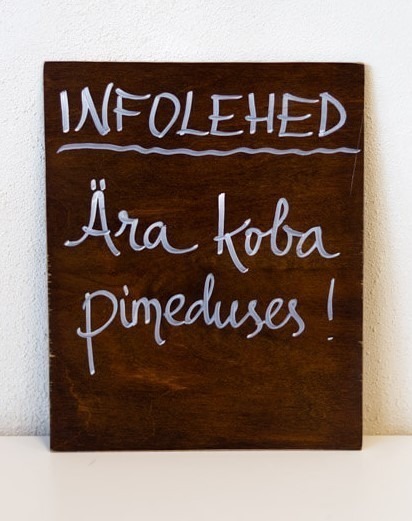 INFOLEHED
Ära koba
pimeduses!